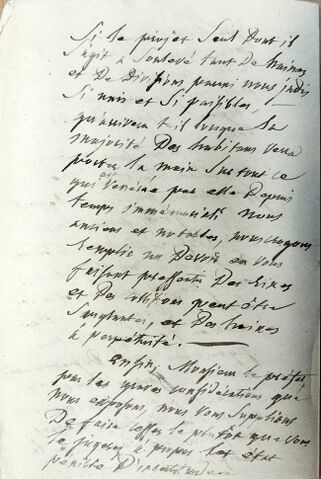 Si le projet seul dont il
s'agit a soulevé tant de haines
et de divisions parmi nous jadis
si unis et si paisibles,
qu'arrivera t-il lorsque la
majorité des habitans verra
porter la main sur tout ce
qui est vénéré par elle depuis
temps immémorial. Nous
anciens et notables, nous croyons
remplir un devoir en vous
faisant pressentir des rixes
et des collisions peut être
sanglantes, et des haines
à perpétuité.
Enfin, Monsieur le préfet
par les graves considérations que
nous exposons, nous vous supplions
de faire cesser le plutôt que vous
le jugerez à propos cet état
pénible d'incertitude